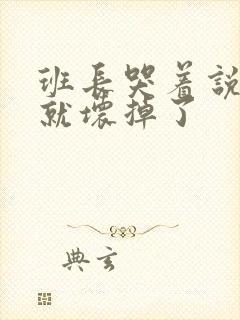 班長哭着説
就壞掉了
典玄